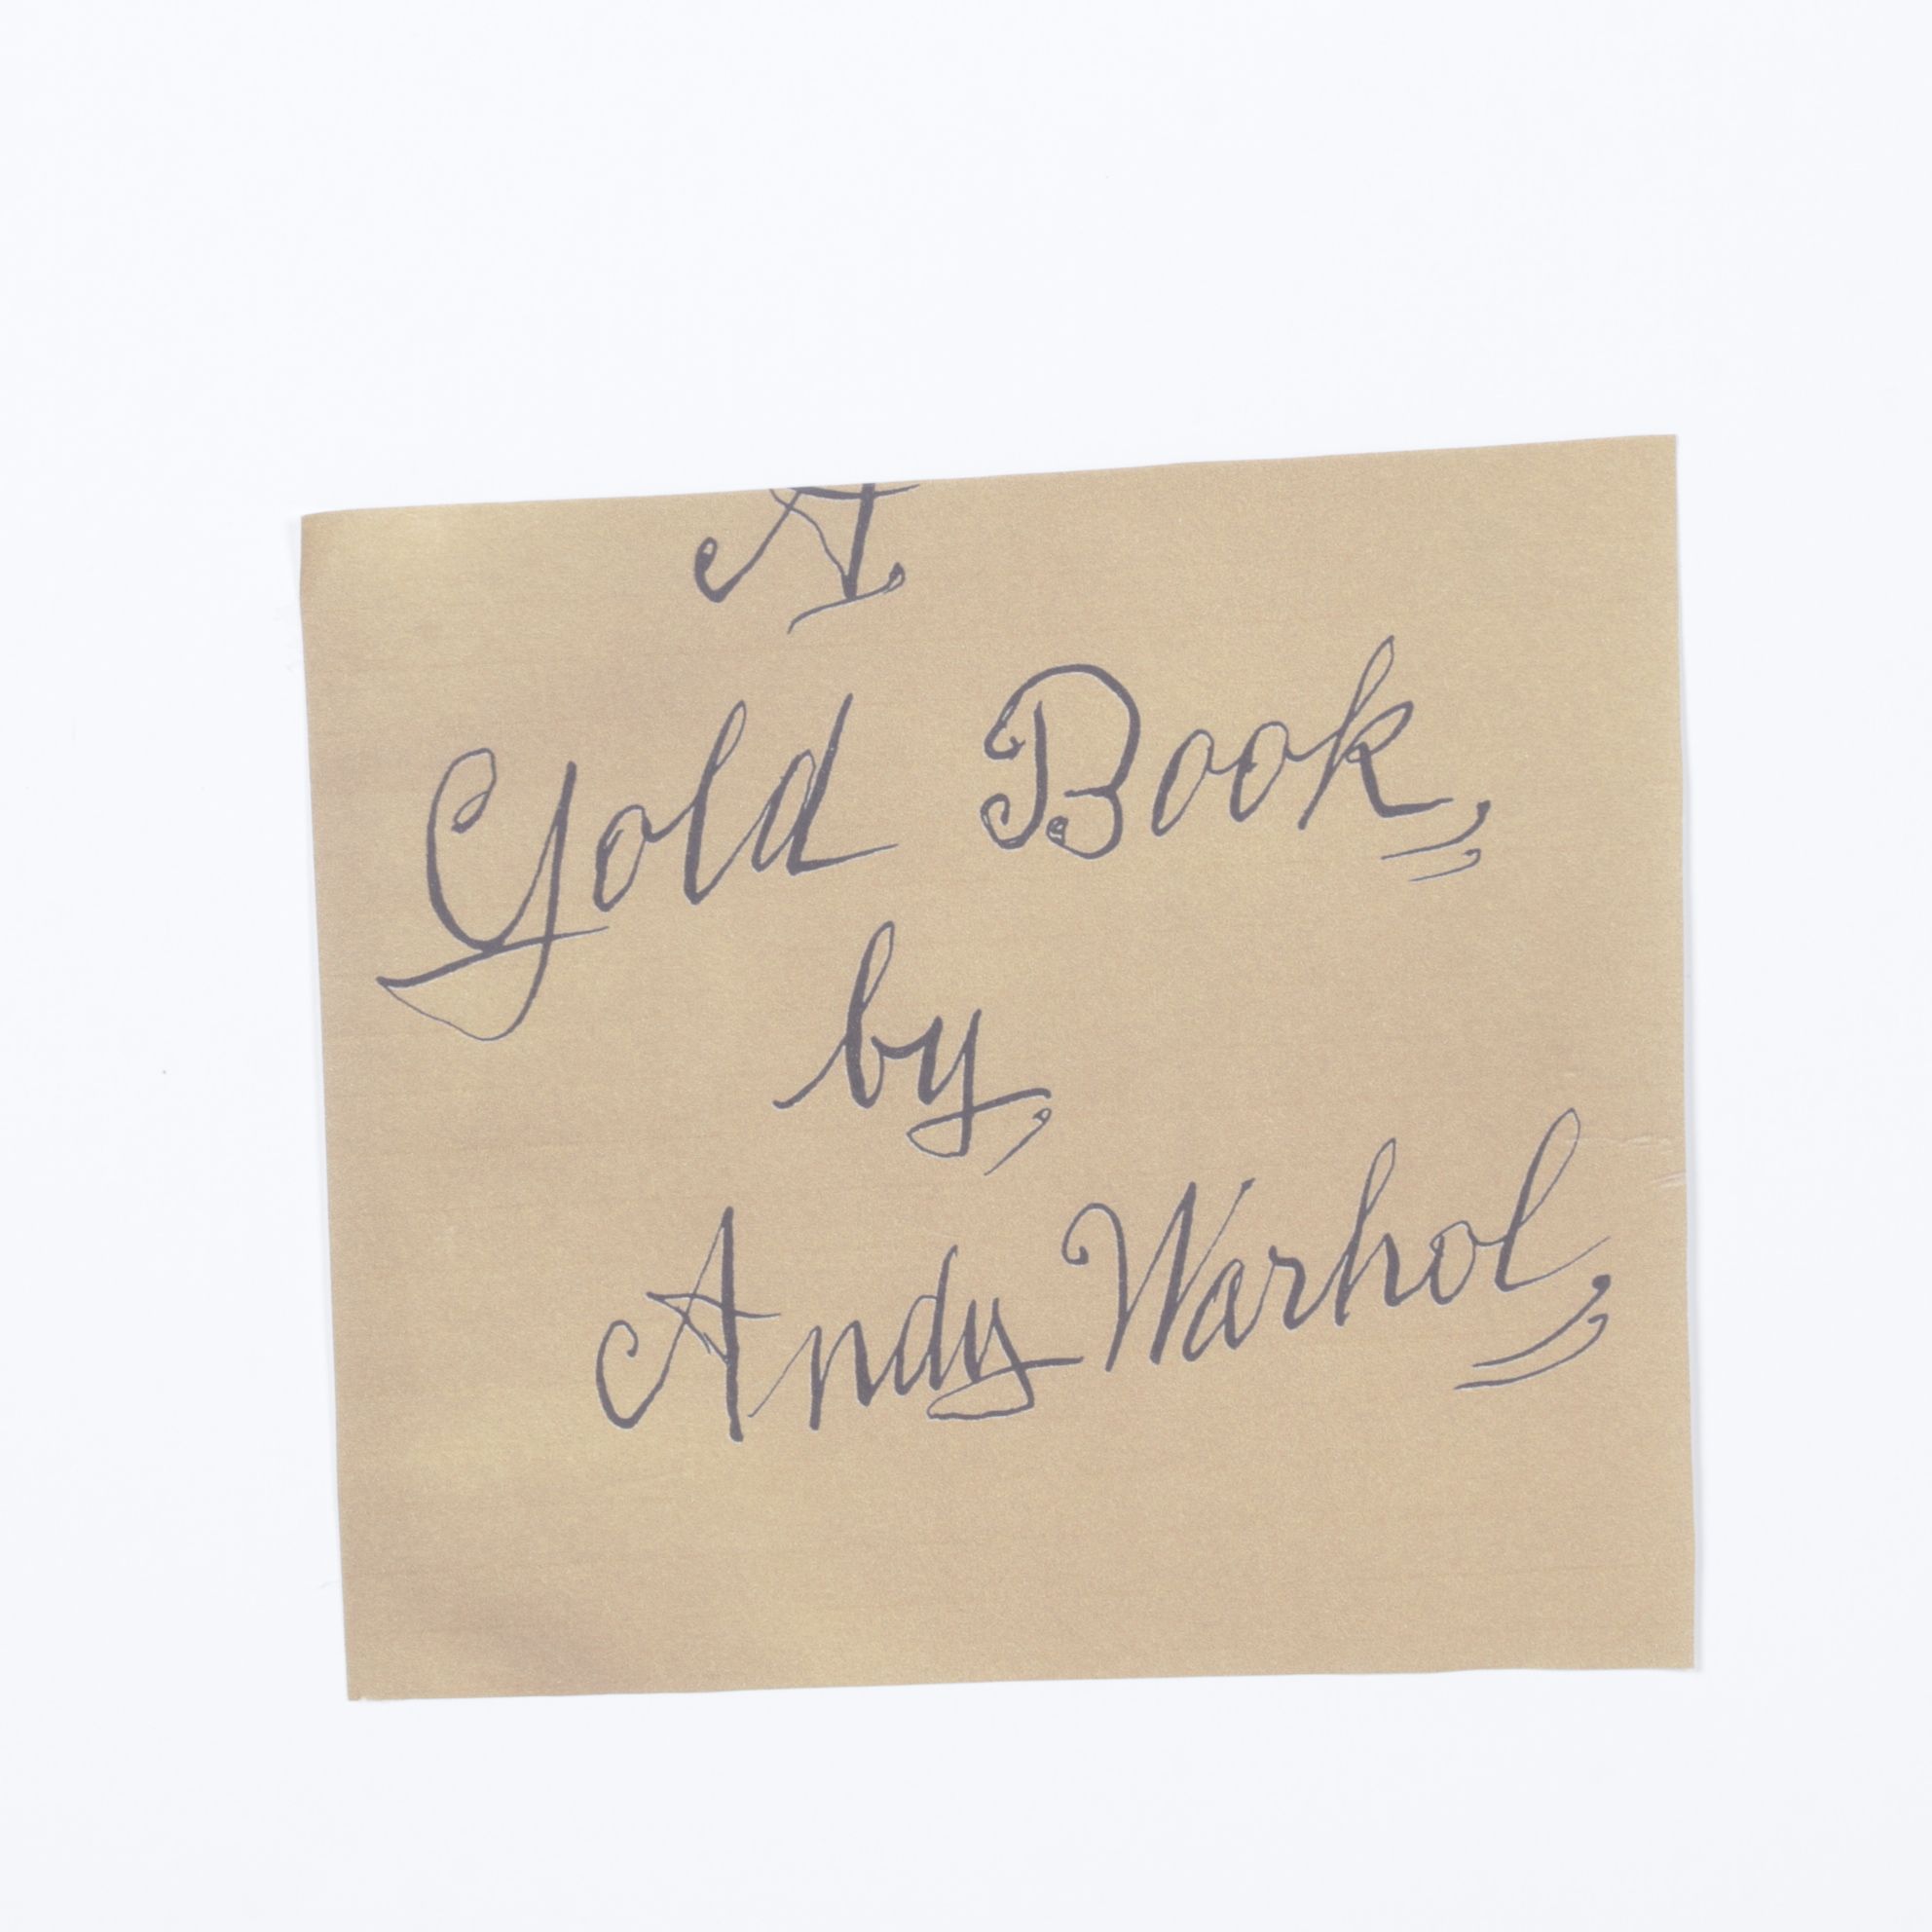 A
Gold Book,
by
Andy Warhol,